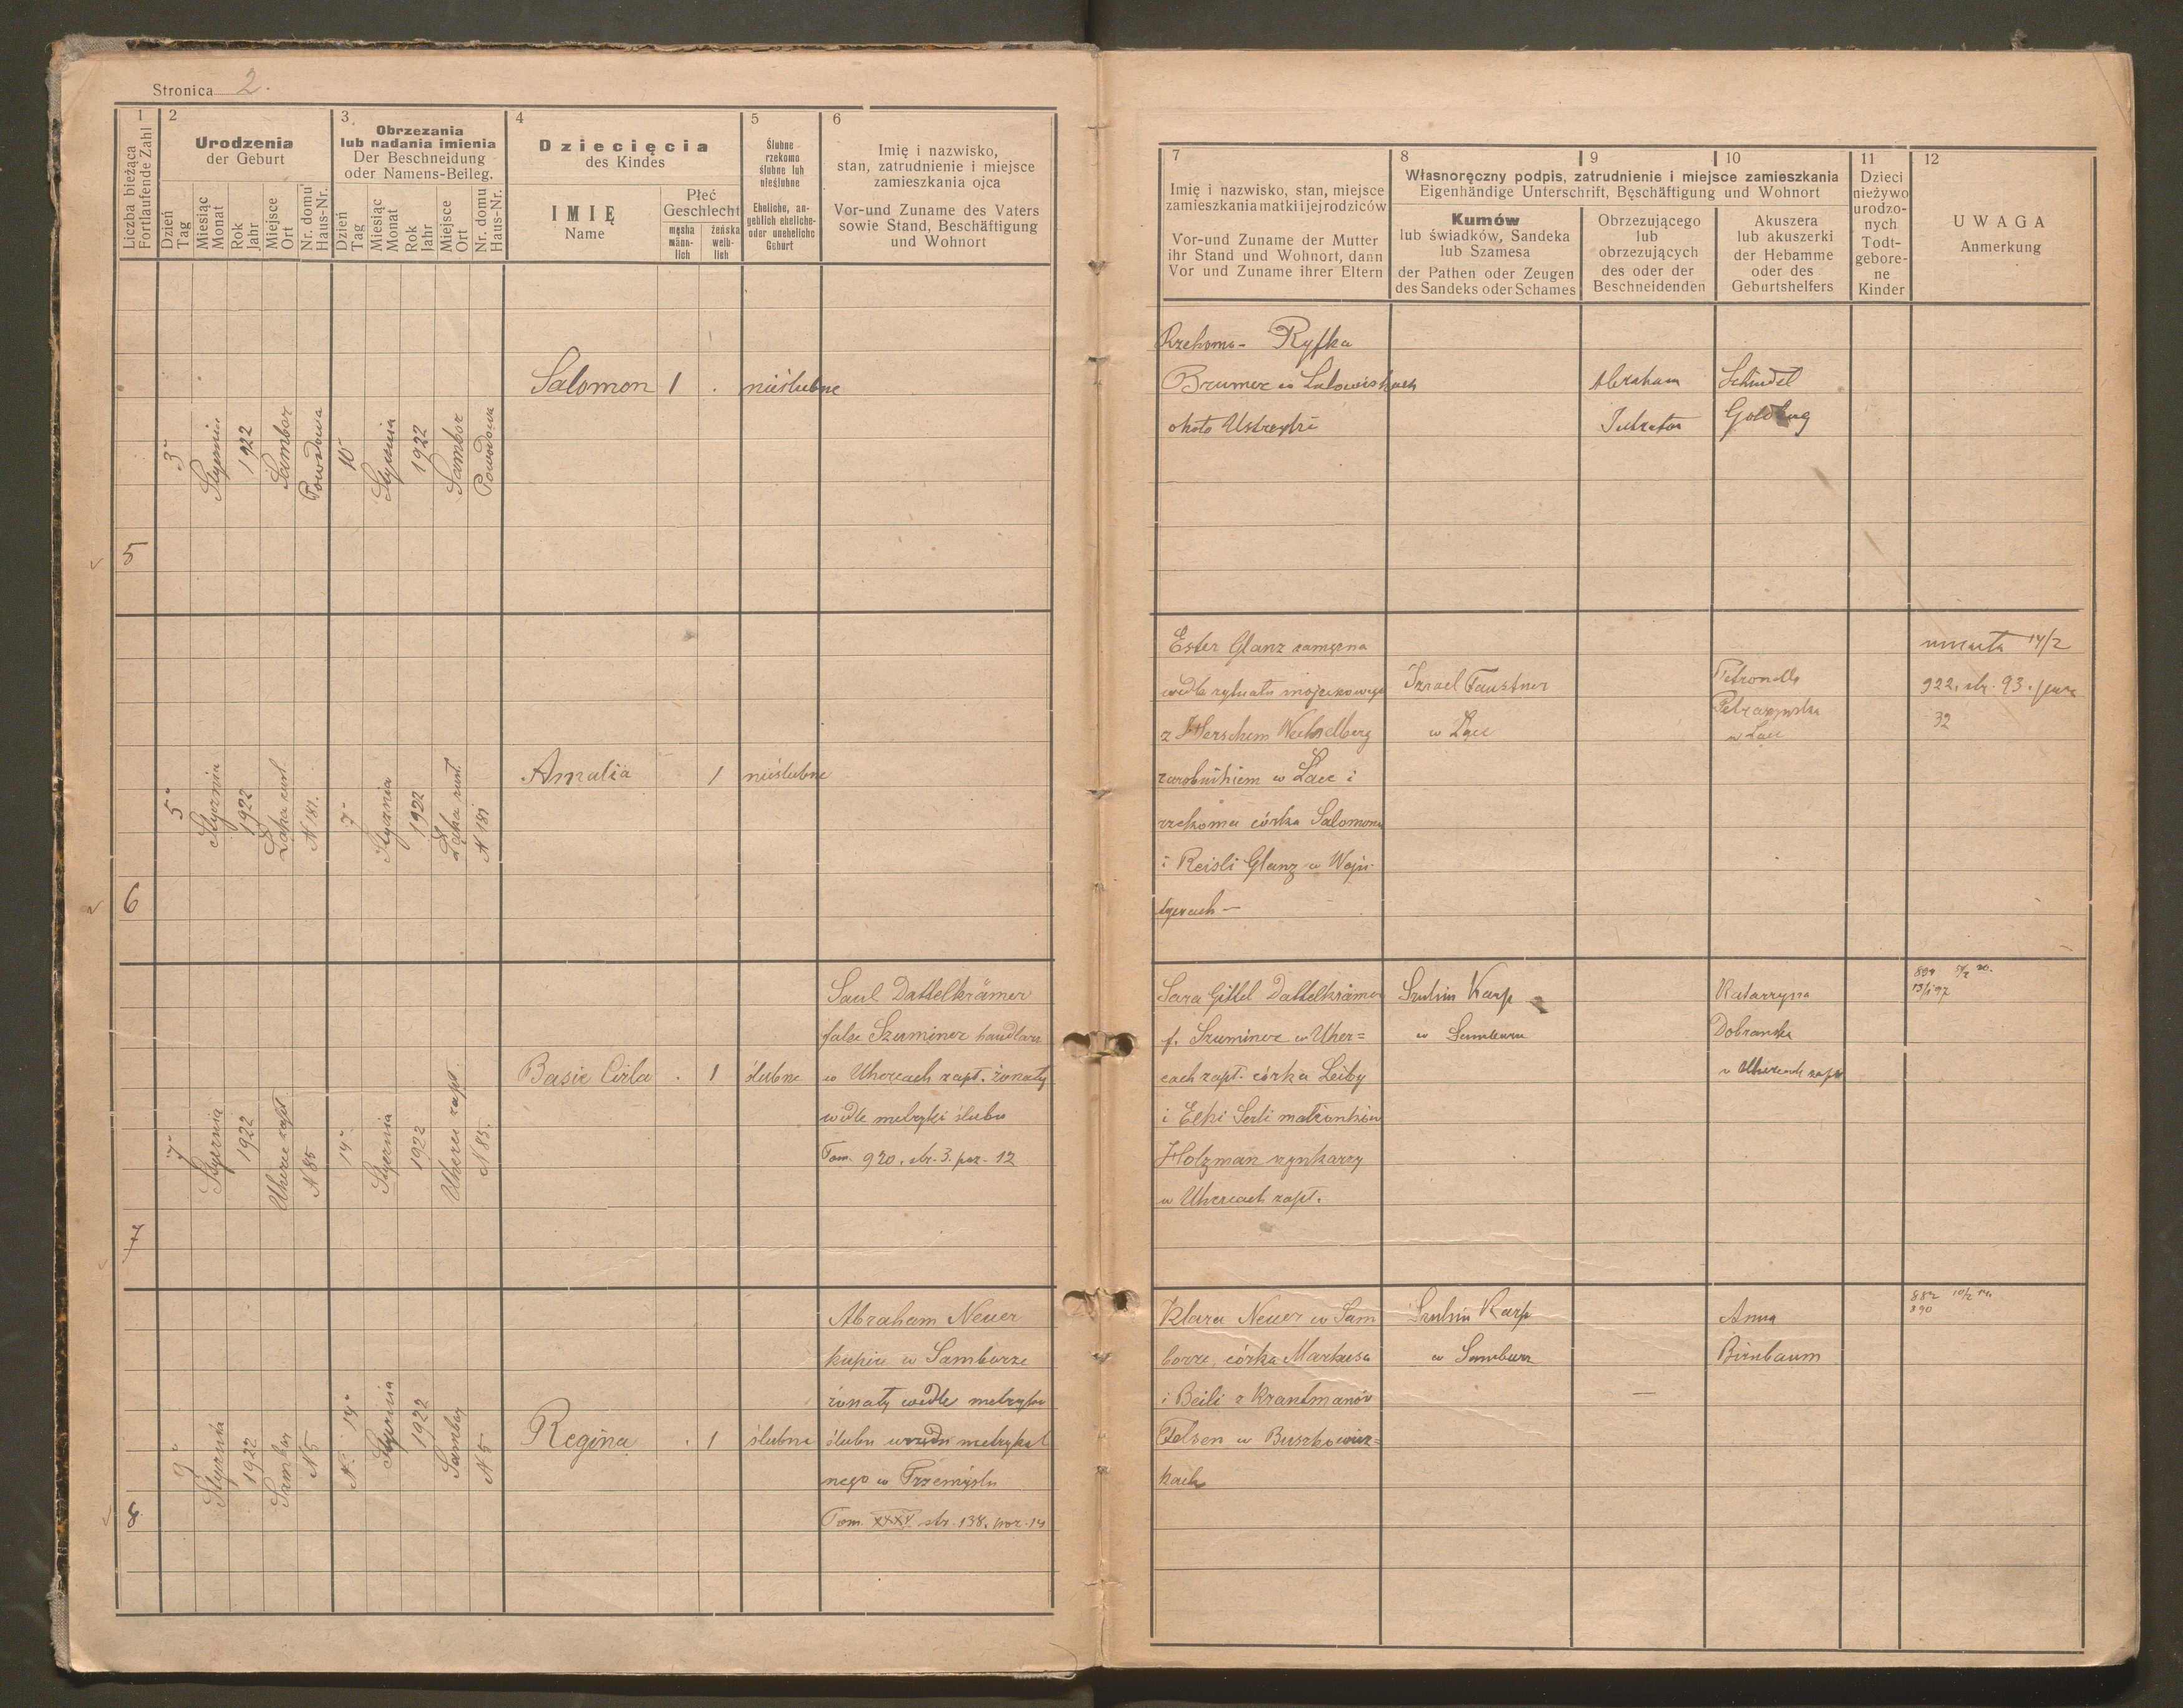 Stronica 2.
1
Liczba bieżąca
Fortlaufende Zahl
2
Urodzenia
der Geburt
Dzień
Tag
Miesiąc
Monat
Rok
Jahr
Miejsce
Ort
Nr. domu
Haus-Nr.
3
Obrzezania
lub nadania imienia
Der Beschneidung
oder Namens-Beileg.
Dzień
Tag
Miesiąc
Monat
Rok
Jahr
Miejsce
Ort
Nr. domu
Haus-Nr.
4
Dziecięcia
des Kindes
IMIĘ
Name
Płeć
Geschlecht
męska
männ-
lich
żeńska
weib-
lich
5
Ślubne
rzekomo
ślubne lub
nieślubne
Eheliche, an-
geblich eheliche-
oder uneheliche
Geburt
6
Imię i nazwisko,
stan, zatrudnienie i miejsce
zamieszkania ojca
Vor-und Zuname des Vaters
sowie Stand, Beschäftigung
und Wohnort
7
Imię i nazwisko, stan, miejsce
zamieszkania matki i jej rodziców
Vor-und Zuname der Mutter
ihr Stand und Wohnort, dann
Vor und Zuname ihrer Eltern
8
9
10
Własnoręczny podpis, zatrudnienie i miejsce zamieszkania
Eigenhändige Unterschrift, Beschäftigung und Wohnort
Kumów
lub świadków, Sandeka
lub Szamesa
der Pathen oder Zeugen
des Sandeks oder Schames
Obrzezującego
lub
obrzezujących
des oder der
Beschneidenden
Akuszera
lub akuszerki
der Hebamme
oder des
Geburtshelfers
11
Dzieci
nieżywo
urodzo-
nych
Todt-
gebore-
ne
Kinder
12
UWAGA
Anmerkung
5
3
Stycznia
1922
Sambor
Powodowa
10
Stycznia
1922
Sambor
Powodowa
Salomon 1 . nieślubne
Rzekomo - Ryfka
Brumer w
około
Abraham
Schindel
Goldberg
6
5
Stycznia
1922
Łąka rust.
N 181.
7
Stycznia
1922
Łąka rust.
N 181
Amalia 1 nieślubne
Ester Glanz zamężna
wedle rytuału mojżeszowego
z Herschem Wechselberg
zarobnikiem w Łące i
rzekoma córka Salomona
i Reisli Glanz w Woju-
tyczach -
Izrael Faustner
w Łące
Petronella
w Łące
umarła 14/2
922. str. 93.
32
7
7
Stycznia
1922
Uherce zapł
N 85
14
Stycznia
1922
Uherce zapł.
N 85.
Basie Cirla . 1 ślubne
Saul Dattelkrämer
false Szuminer handlarz
w Uhercach zapł. żonaty
wedle metryki ślubu
Tom. 920. str. 3. poz. 12
Sara Gittel Dattelkrämer
f. Szuminer w Uher=
cach zapł. córka Leiby
i Elki Serli małżonków
Holzman szynkarzy
w Uhercach zapł.
Szulim Karp
w Samborze
Katarzyna
Dobranska
w Uhercach zapł
8
9
Stycznia
1922
Sambor
N 5
14
Stycznia
1922
Sambor
N 5
Regina . 1 ślubna
Abraham Neuer
kupiec w Samborze
żonaty wedle metryki
ślubu urzędu metrykal
nego w Przemyślu
Tom. XXXV str. 138. poz. 14
Klara Neuer w Sam
borze, córka Markusa
i Beili z Krantmanów
Felsen w Buszkowicz=
kach
Szulim Karp
w Samborze
—
Anna
Birnbaum
882 10/2
890